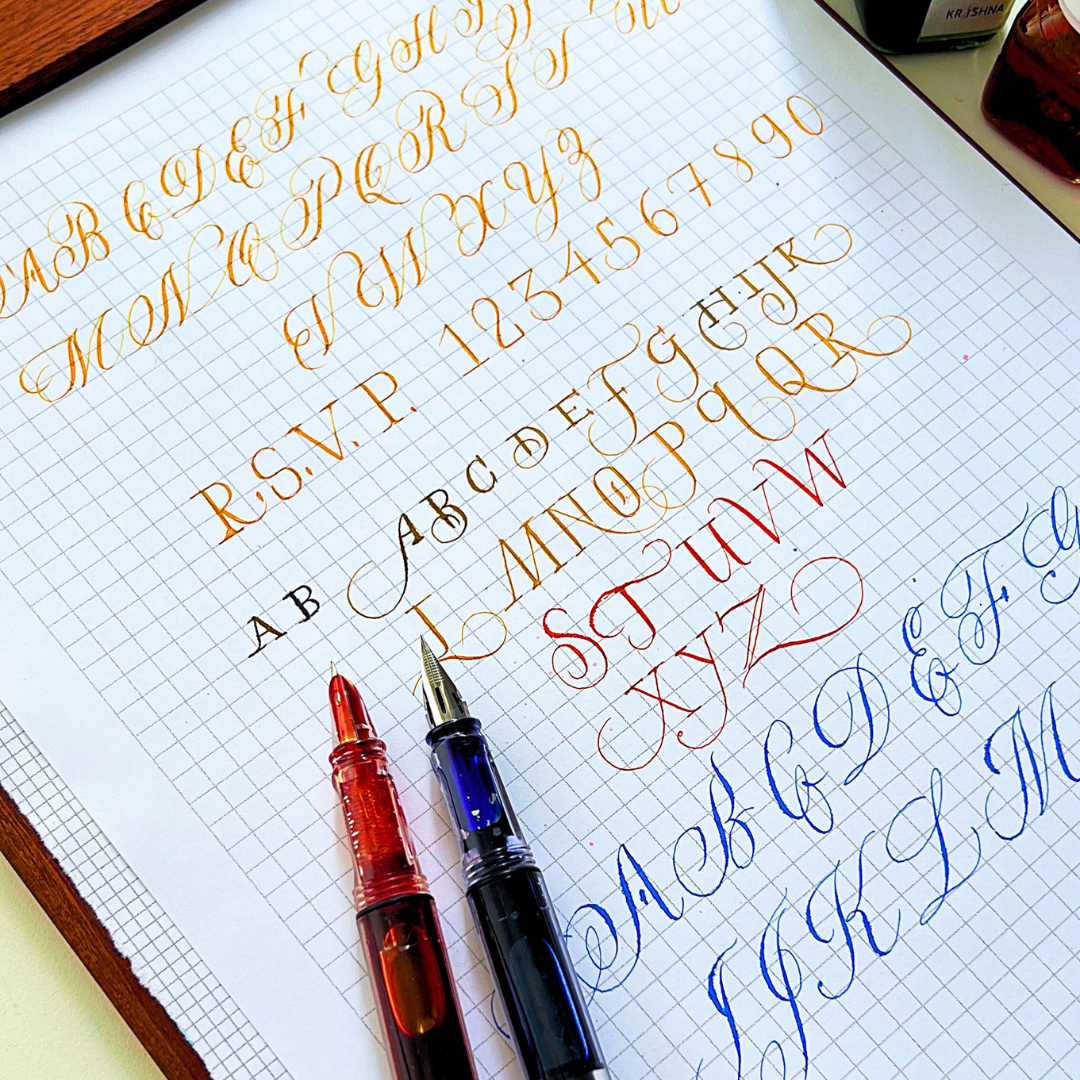 KRISHNA
A B C D E F G H I J
M N O P Q R S T
V W X Y Z
1 2 3 4 5 6 7 8 9 0
R.S.V.P.
A B
A B C D E F G H I J K
L M N O P Q R
S T U V W
X Y Z
A B C D E F G
I J K L M